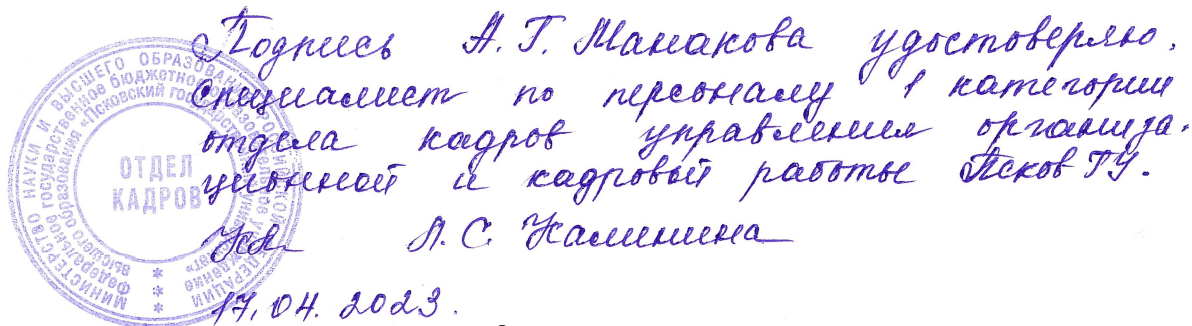 Подпись А.Г. Манакова удостоверяю.
Специалист по персоналу 1 категории
отдела кадров управления организа-
ционной и кадровой работы ПсковГУ.
Л.С. Калинина
17.04.2023.
МИНИСТЕРСТВО НАУКИ И ВЫСШЕГО ОБРАЗОВАНИЯ РОССИЙСКОЙ ФЕДЕРАЦИИ
Федеральное государственное бюджетное образовательное учреждение
высшего образования «Псковский государственный университет»
ОТДЕЛ
КАДРОВ